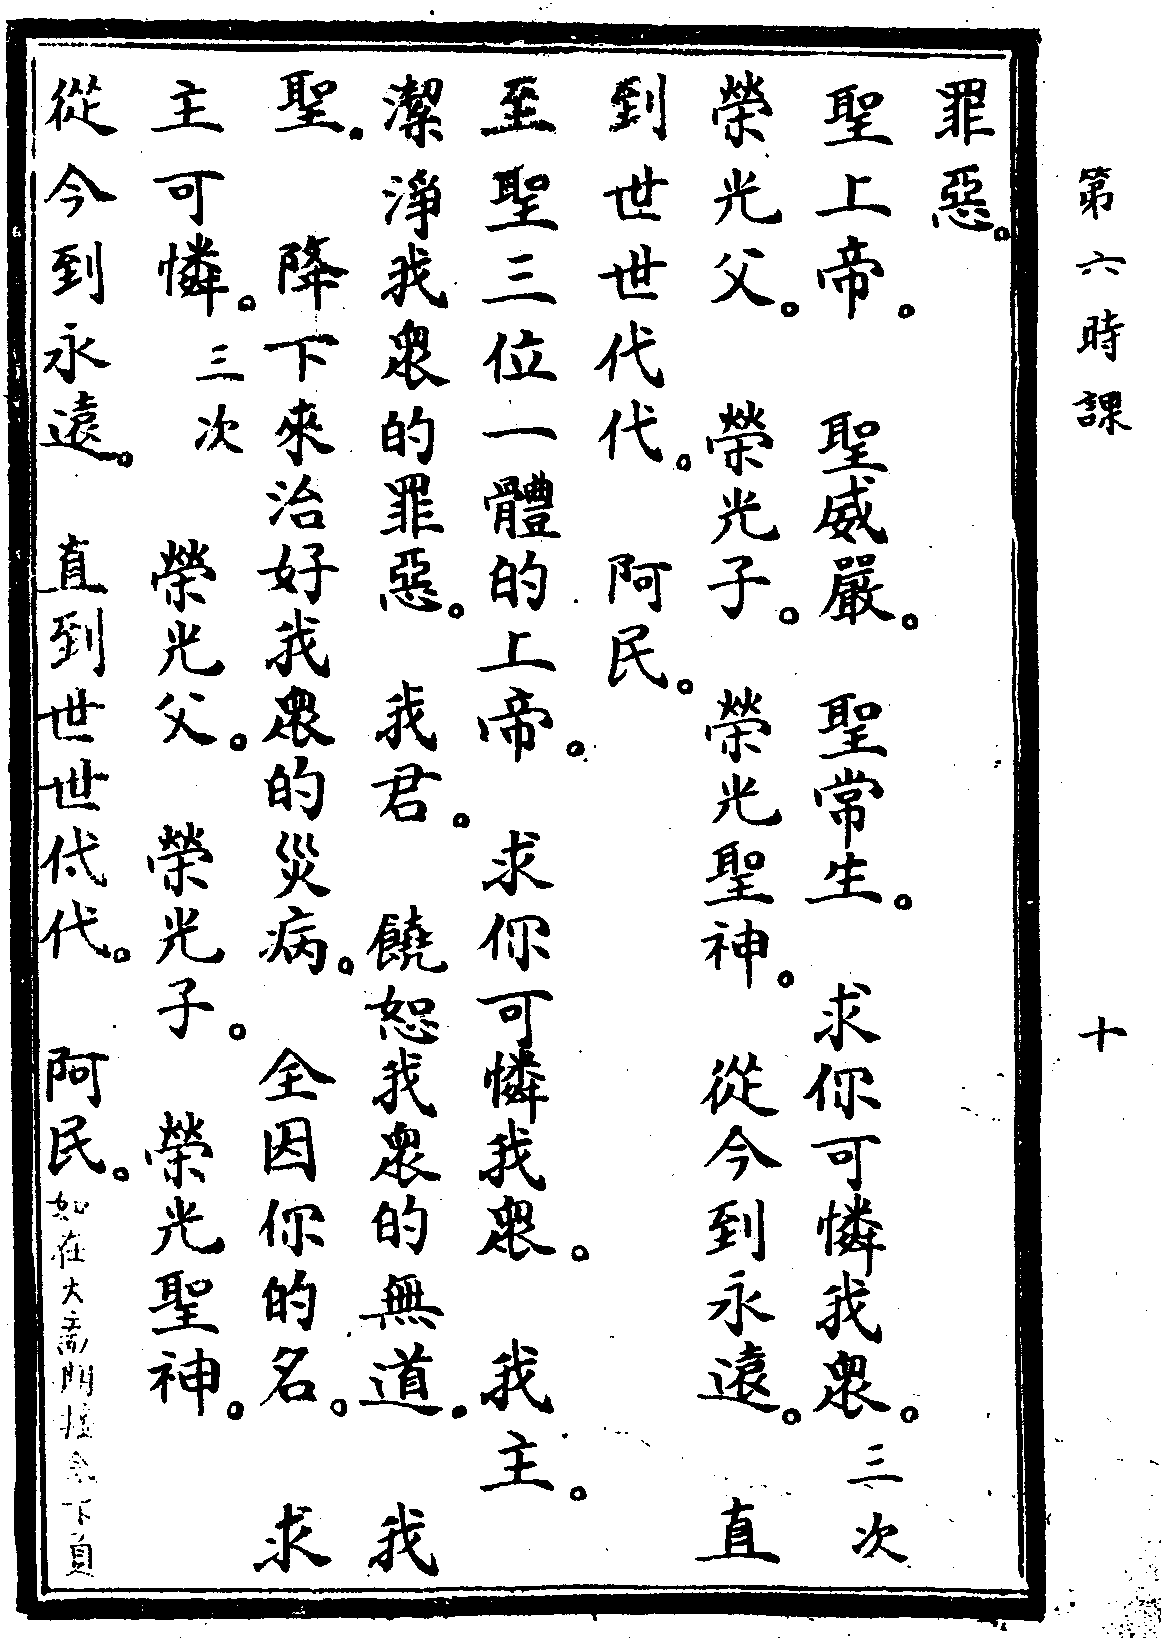 第六時課　十
罪惡。
聖上帝。　聖威嚴。　聖常生。　求你可憐我衆。三次
榮光父。　榮光子。　榮光聖神。　從今到永遠。　直
到世世代代。　阿民。
至聖三位一體的上帝。　求你可憐我衆。　我主。
潔淨我衆的罪惡。　我君。　饒恕我衆的無道.　我
聖.　降下來治好我衆的災病。　全因你的名。　求
主可憐。三次　榮光父。　榮光子。　榮光聖神。
從今到永遠。　直到世世代代。　阿民。如在大齋下頁